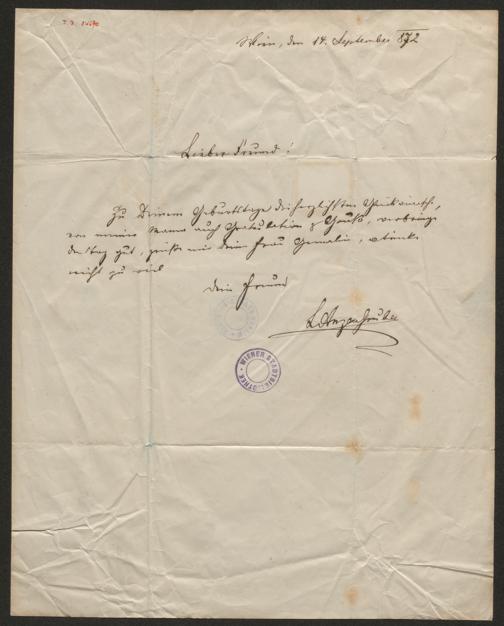 Wien, den 14. September 872
Lieber Freund!
Zu Deinem Geburtstage die herzlichsten Glückwünsche,
von meiner Mama auch Gratulation & Gruß, verbringe
den Tag gut, grüße mir deine Frau Gemalin,
nicht zu viel
Dein Freund
LAnzengruber
WIENER STADTBIBLIOTHEK